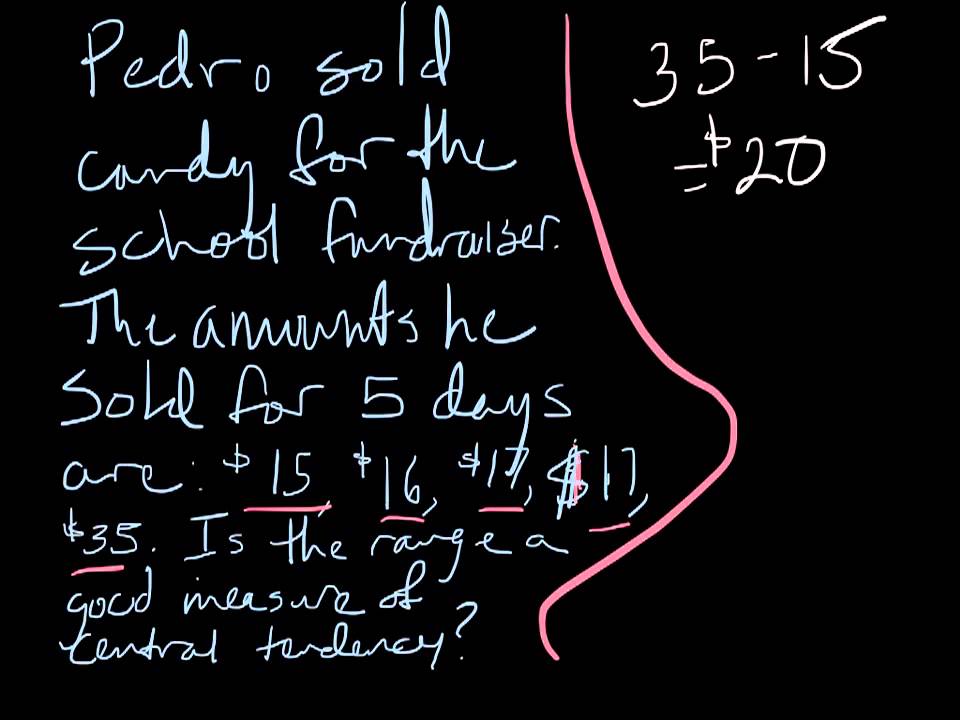 Pedro sold
candy for the
school fundraiser.
The amounts he
sold for 5 days
are: $15, $16, $17, $17,
$35. Is the range a
good measure of
central tendency?
35 - 15
= $20